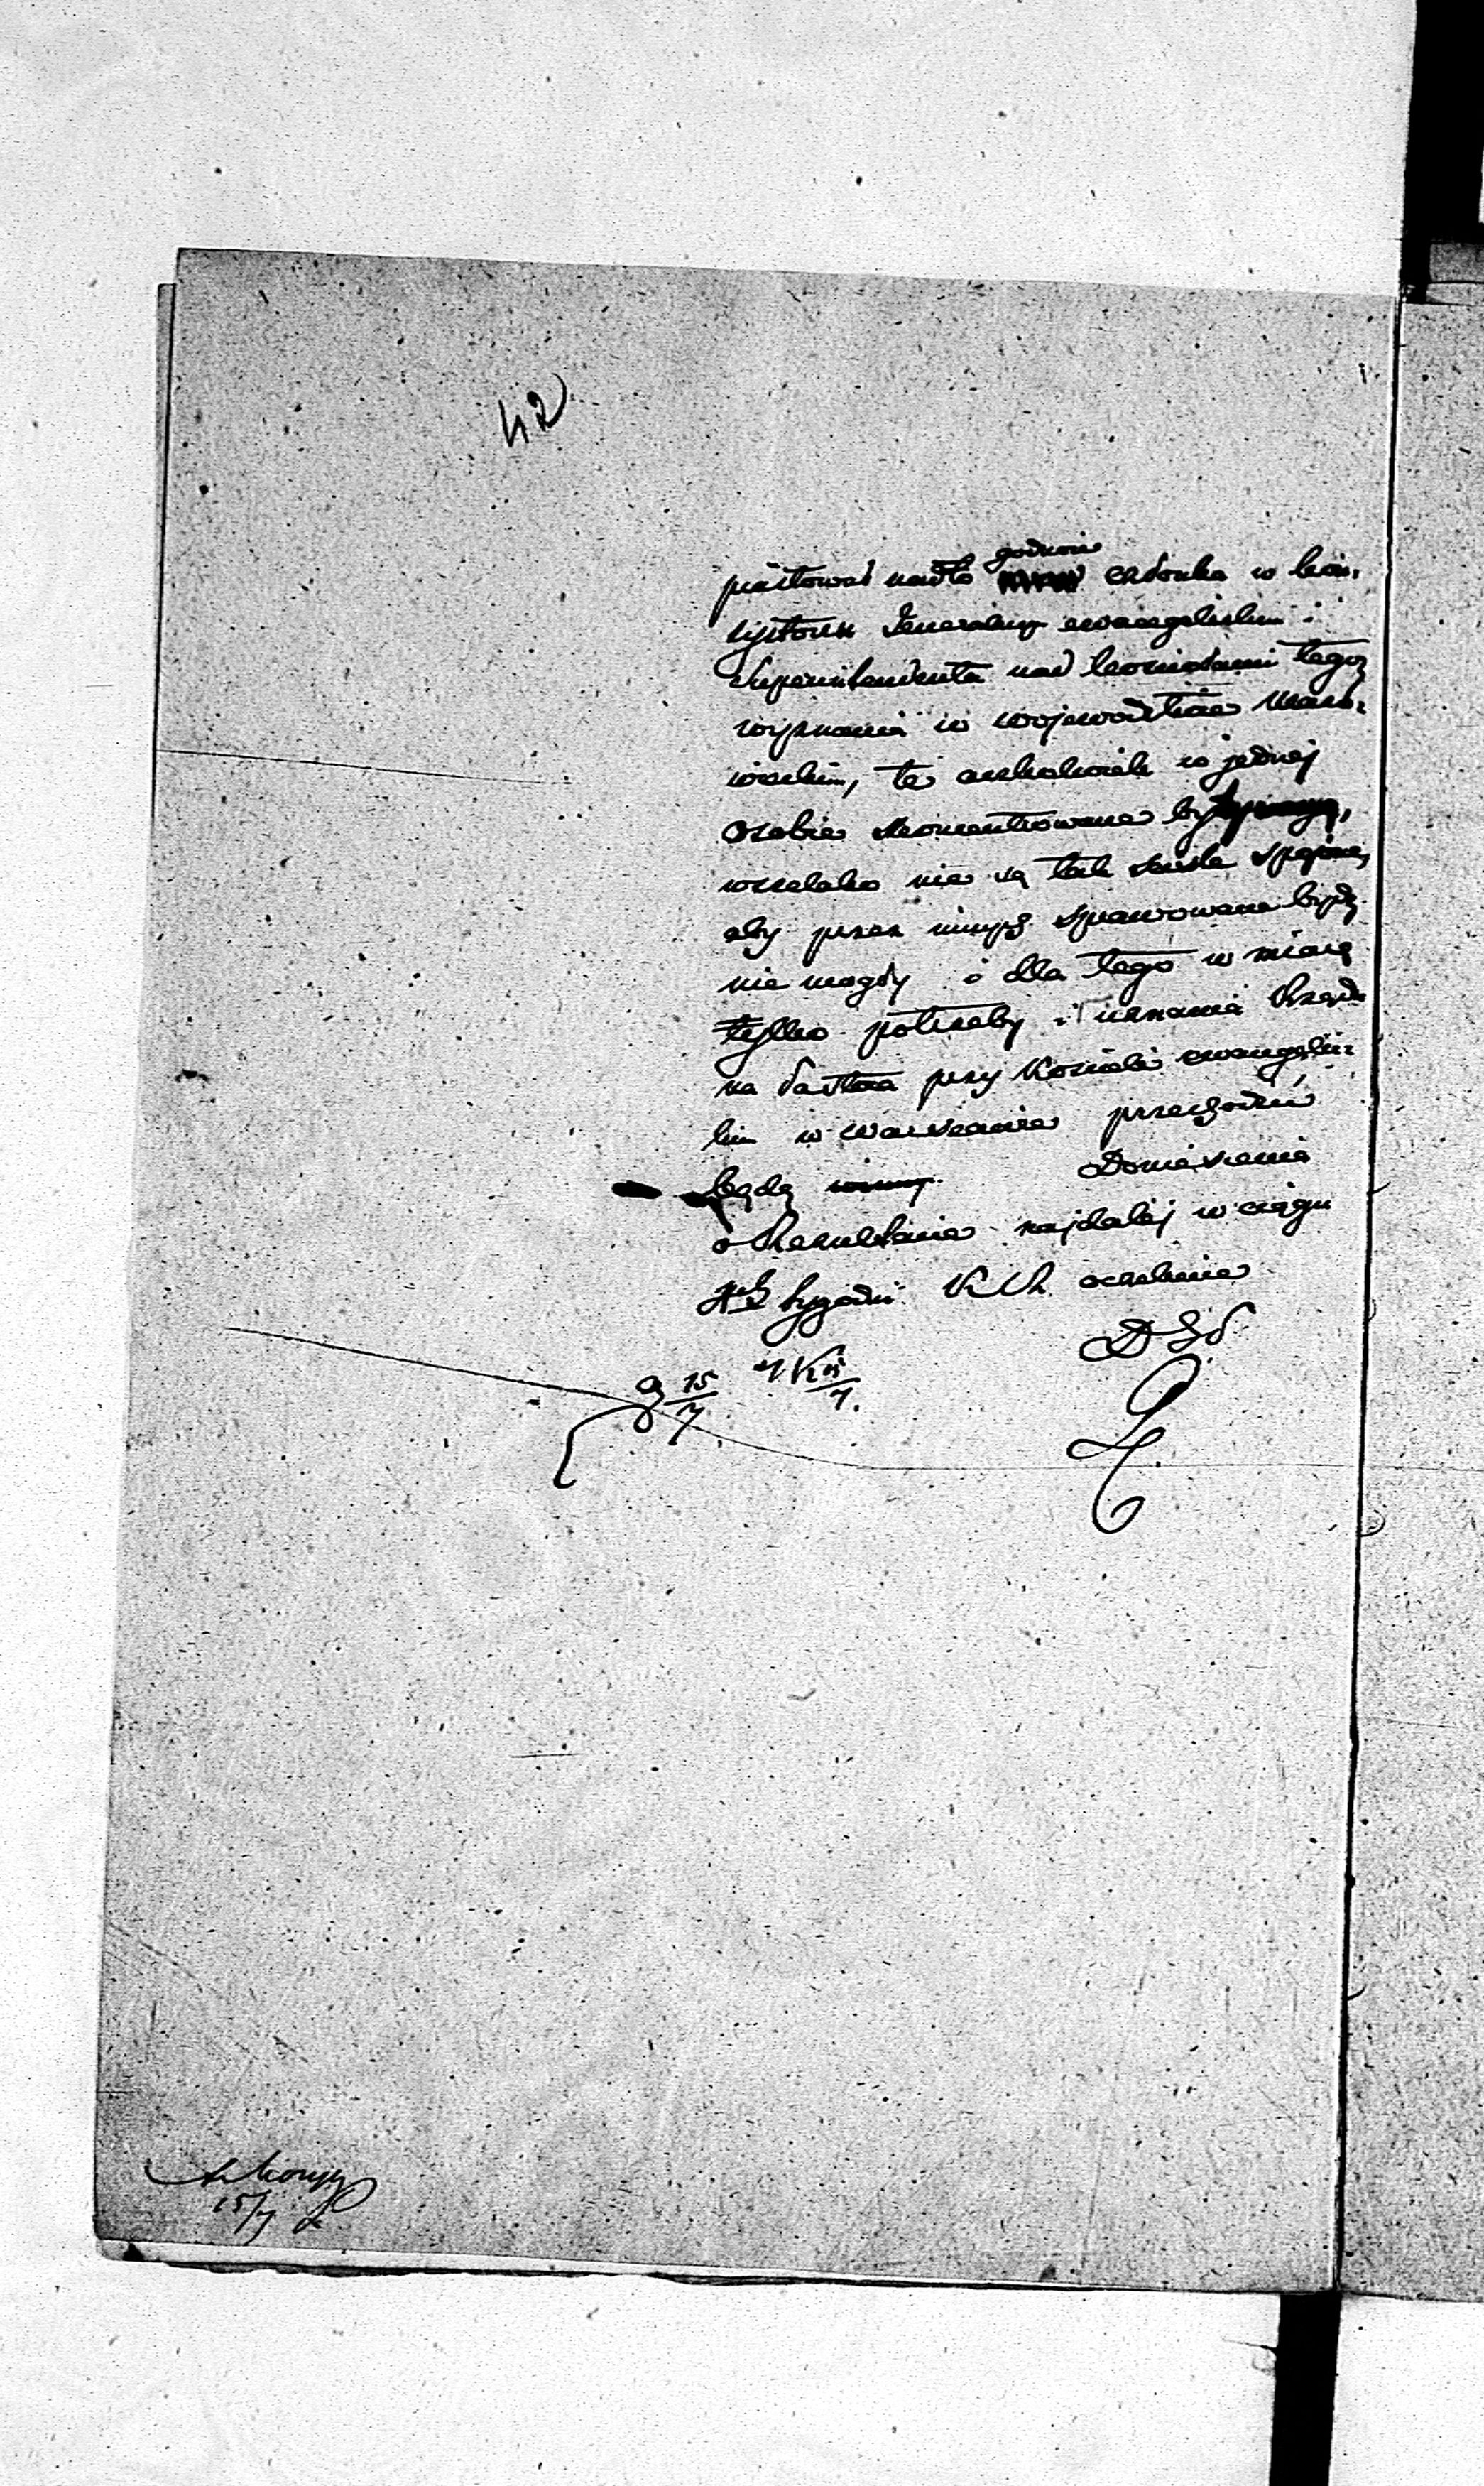 42
godność
piastował nadto członka w kon:
systorzu Generalnym ewangelickim i
Superintendenta nad kościołami tegoż
wyznania w województwie Mazo:
wieckim, te aczkolwiek w jednej
osobie skoncentrowane były
wszelako nie są tak ściśle spojone,
aby przez innych sprawowane bydź
nie mogły i dla tego w miarę
tylko potrzeby i uznania Rządu
na Pastora przy Kościele ewangelic:
kim w Warszawie przechodzić
będą Doniesienia
o Rezultacie najdalej w ciągu
tygodni K R oczekiwać
15/7
15/7